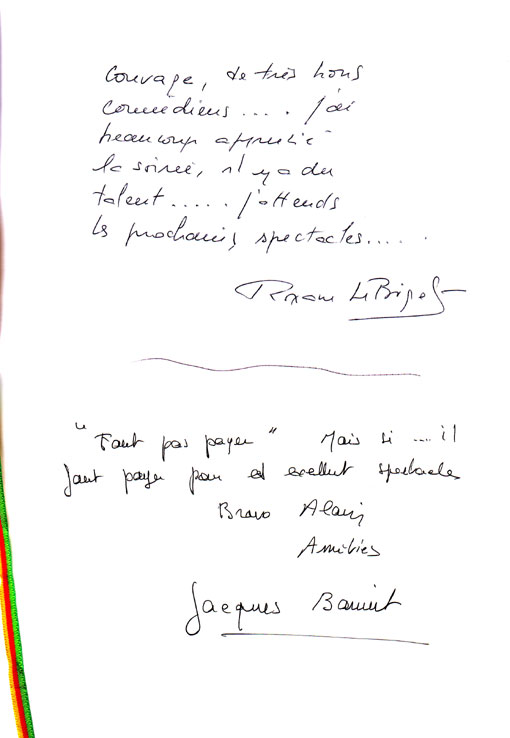 Courage, de très bons
comédiens .... j'ai
beaucoup apprécié
la soirée, il y a du
talent ..... j'attends
les prochains spectacles .....
Le Bigot
"Faut pas payer" Mais si .... il
faut payer pour cet excellent spectacles
Bravo Alain
Amitiés
Jacques